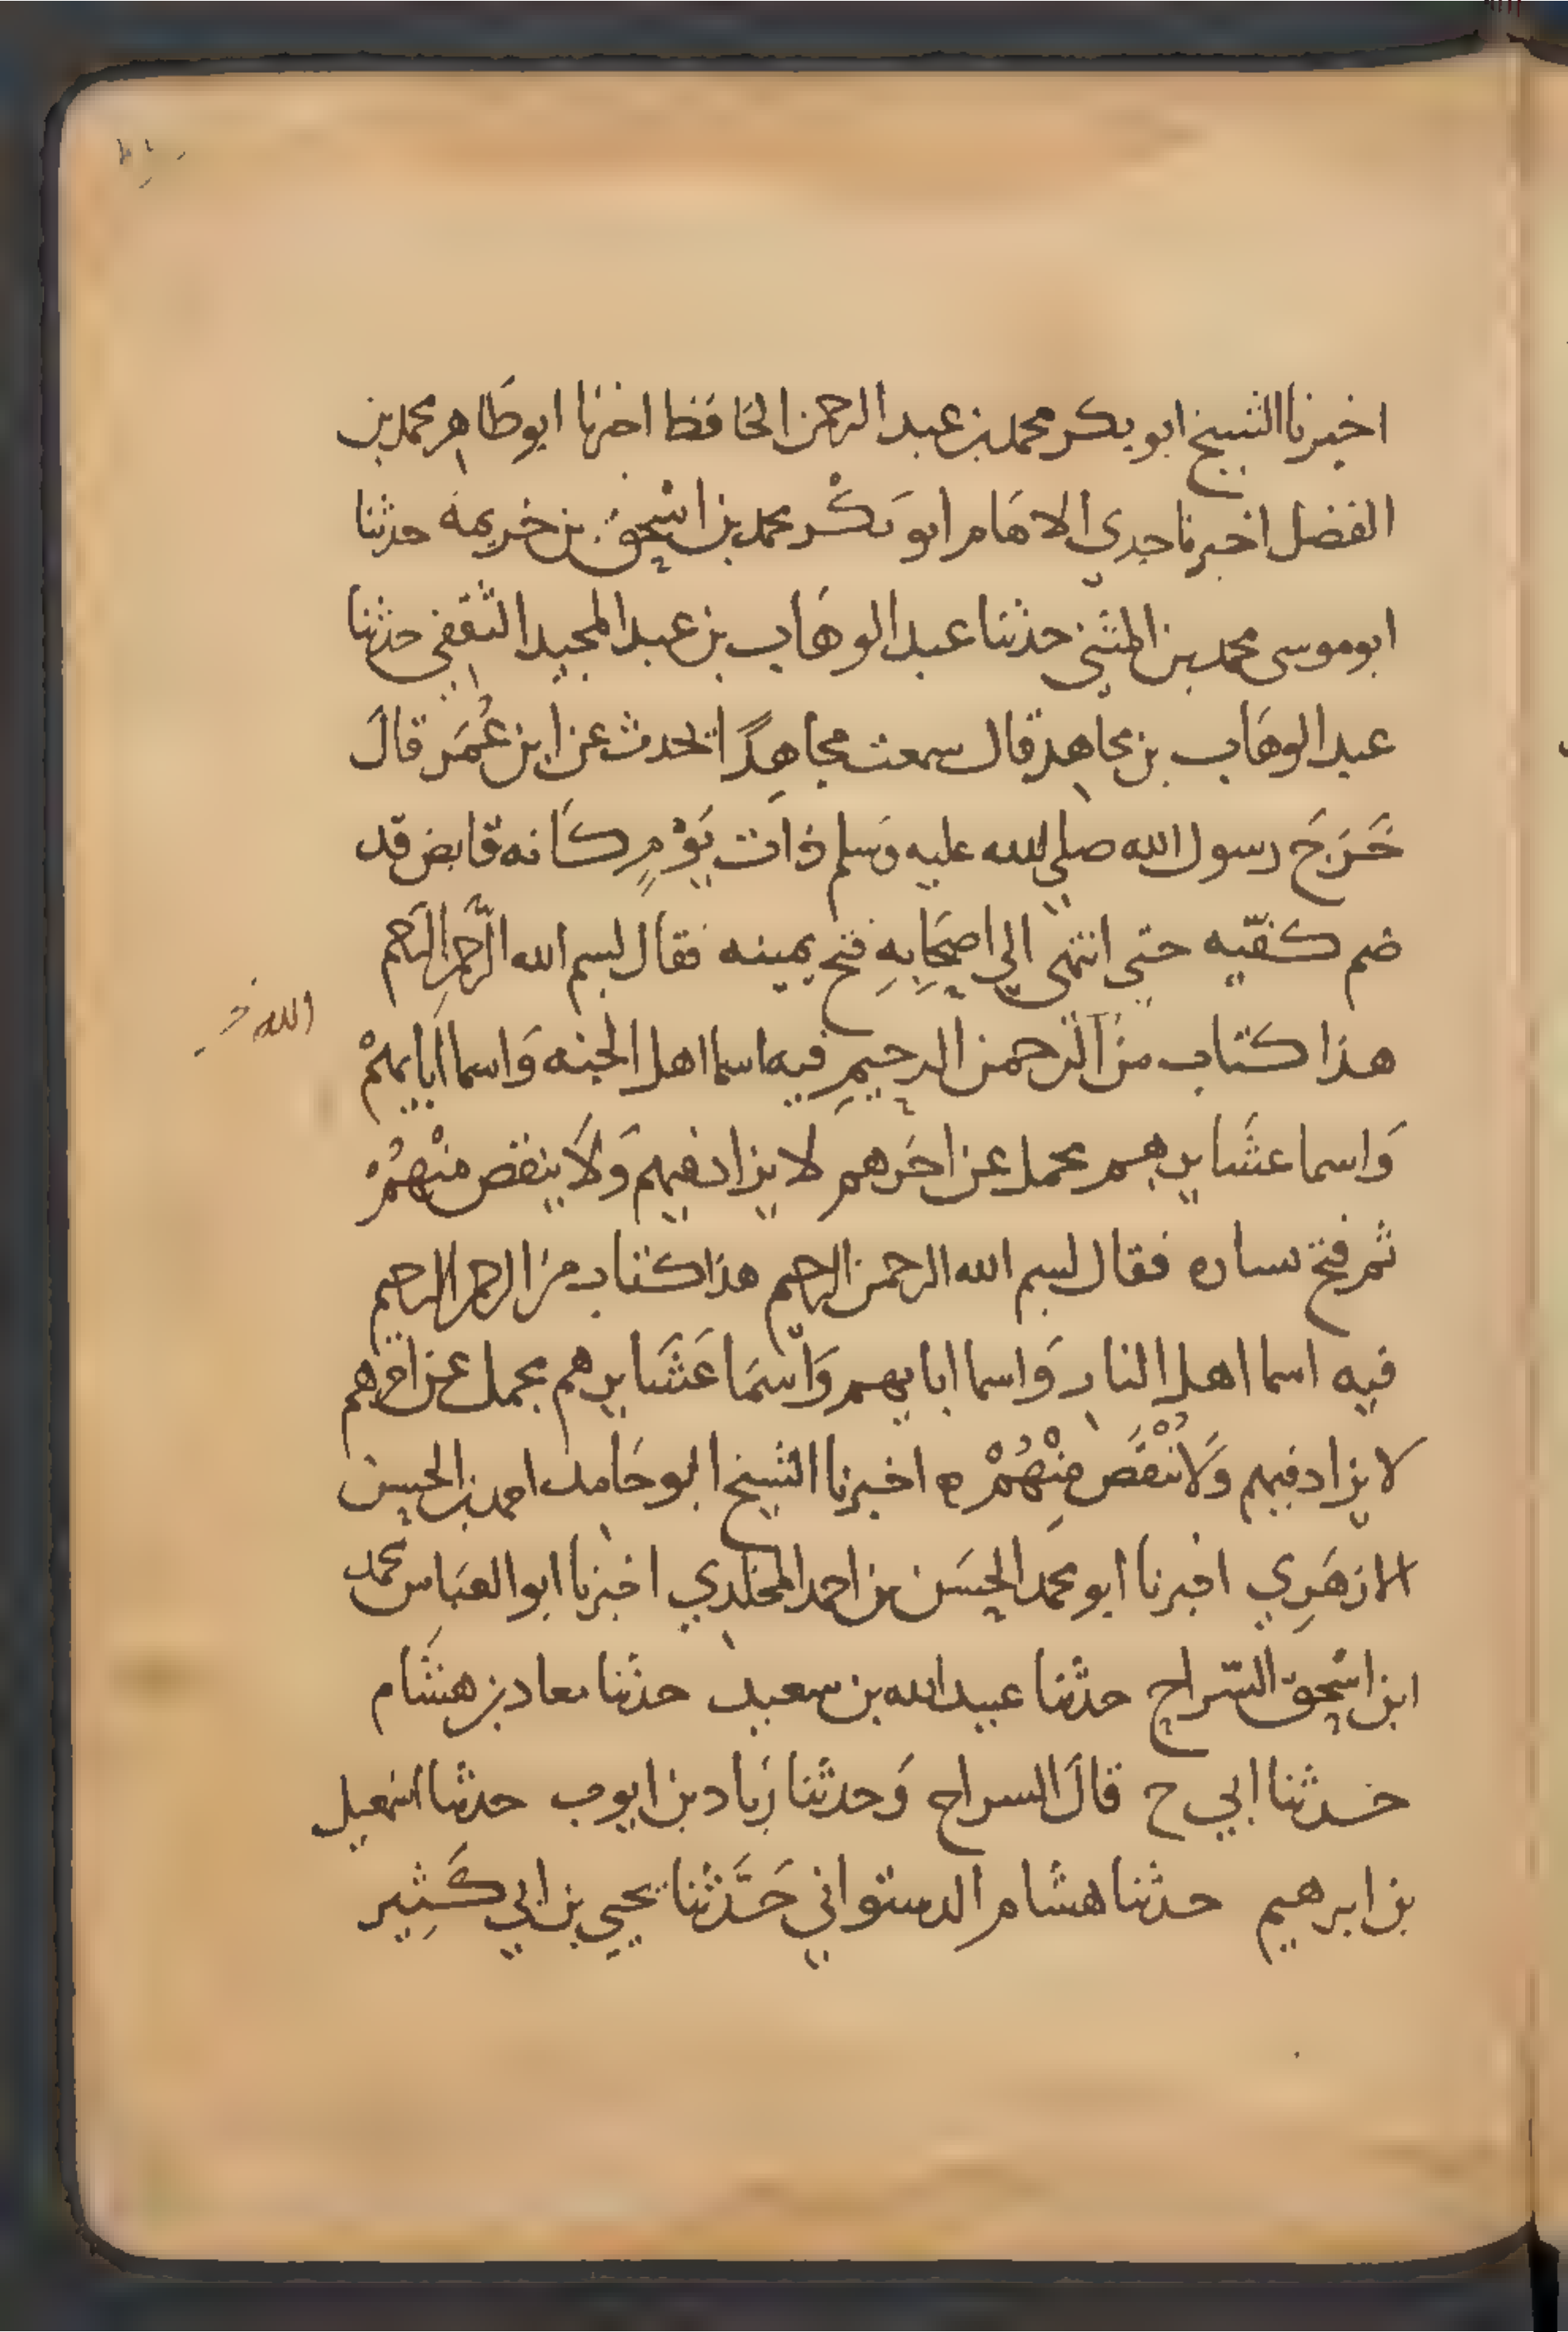 اخبرنا الشيخ ابو بكر محمد بن عبد الرحمن الحافظ اخبرنا ابو طَاهر محمد بن
الفضل اخبرنا جدي الامَام ابو بَكْر محمد بن اسْحق بن خزيمة حدثنا
ابو موسى محمد بن المثني حدثنا عبد الوهَاب بن عبد المجيد الثقفي حدثنا
عبد الوهَاب بن مجاهد قال سمعت مجاهِدًا يحدث عن ابن عُمَر قالَ
خَرَجَ رسول الله صلي الله عليه وَسلم ذات يَوْمٍ كَانه قابض قد
ضم كفّيه حتي انتهى الي اصحَابِهِ فتح يمينه فقال بسم الله الرَّحمنِ الرَحيم
هذا كتاب منَ الرَحمن الرحيمِ فيه اسما اهل الجنه وَاسما اَبايهمْ
الله
وَاسما عشَايرهم مجمل عن اخَرهم لا يزاد فيهم وَلَا ينقص منْهُمْ
ثم فتح يساره فقال بسم الله الرحمن الرحيم هذا كتاب من الرحمن الرحيم
فيه اسما اهل النار وَاسما ابايهم وَاسمَا عَشَايرهم مجمل عن اخرهم
لا يزاد فيهم وَلَا يُنْقَص مِنْهُمْ ه اخبرنا الشيخ ابو حَامد احمد بن الحسين
الازهَرِي اخبرنا ابو محمد الحِسَن بن احمد المخلدي اخبرنا ابو العبَاس محمد
ابن اسْحق السّراج حدثنا عبيد الله بن سعيد حدثنا معاد بن هشَام
حدثنا ابي ح قالَ السراج وَحدثنا زيَاد بن ايوب حدثنا اسمعيل
بن ابرهيم حدثنا هشام الدستواني حَدَّثنا يحيي بن ابي كَثِير